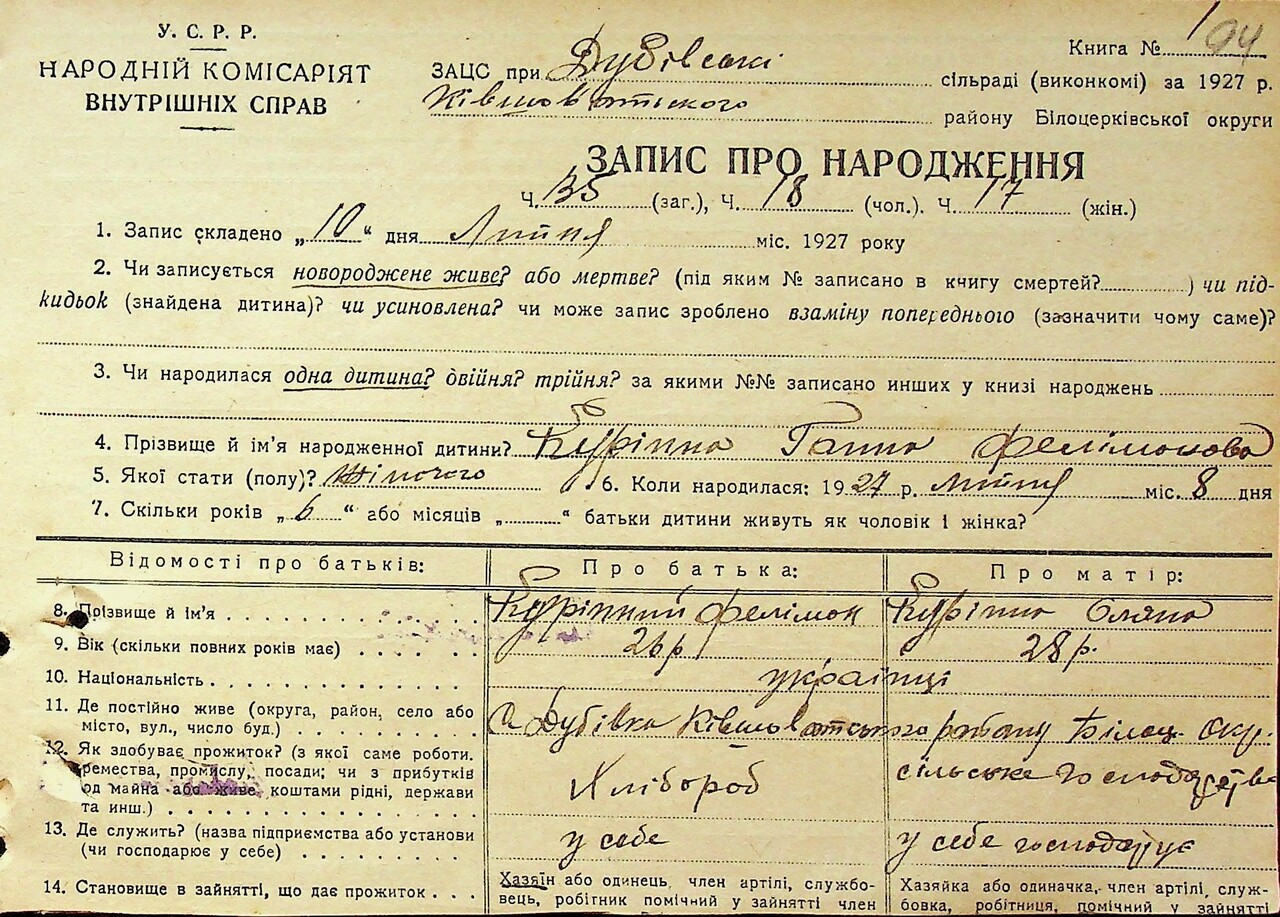 У. С. Р. Р.
НАРОДНІЙ КОМІСАРІЯТ
ВНУТРІШНІХ СПРАВ
Книга № 1 94
ЗАЦС при Дубівські сільраді (виконкомі) за 1927 р.
Ківшоватського району Білоцерківської округи
ЗАПИС ПРО НАРОДЖЕННЯ
Ч. 135 (заг.), Ч. 18 (чол.). Ч. 17 (жін.)
1. Запис складено „10“ дня Липня міс. 1927 року
2. Чи записується новороджене живе? або мертве? (під яким № записано в книгу смертей? ) чи під-
кидьок (знайдена дитина)? чи усиновлена? чи може запис зроблено взаміну попереднього (зазначити чому саме)?
3. Чи народилася одна дитина? двійня? трійня? за якими №№ записано инших у книзі народжень
4. Прізвище й ім'я народженної дитини? Курінна Ганна Фелімонова
5. Якої стати (полу)? Жіночого 6. Коли народилася: 1927 р. Липня міс. 8 дня
7. Скільки років „6“ або місяців „ “ батьки дитини живуть як чоловік і жінка?
Відомості про батьків: Про батька: Про матір:
8. Прізвище й ім'я Курінний Фелімон Курінна Оляна
9. Вік (скільки повних років має) 26 р 28 р.
10. Національність українці
11. Де постійно живе (округа, район, село або
місто, вул., число буд.) С. Дубівка Ківшоватського району Білоц. Окр.
12. Як здобуває прожиток? (з якої саме роботи.
ремества, промислу, посади; чи з прибутків
од майна або живе коштами рідні, держави
та инш.) Хлібороб сільське господарство
13. Де служить? (назва підприємства або установи
(чи господарює у себе) у себе у себе господарує
14. Становище в зайнятті, що дає прожиток
Хазяїн або одинець, член артілі, службо-
вець, робітник помічний у зайнятті член
Хазяйка або одиначка, член артілі, служ-
бовка, робітниця, помічний у зайнятті